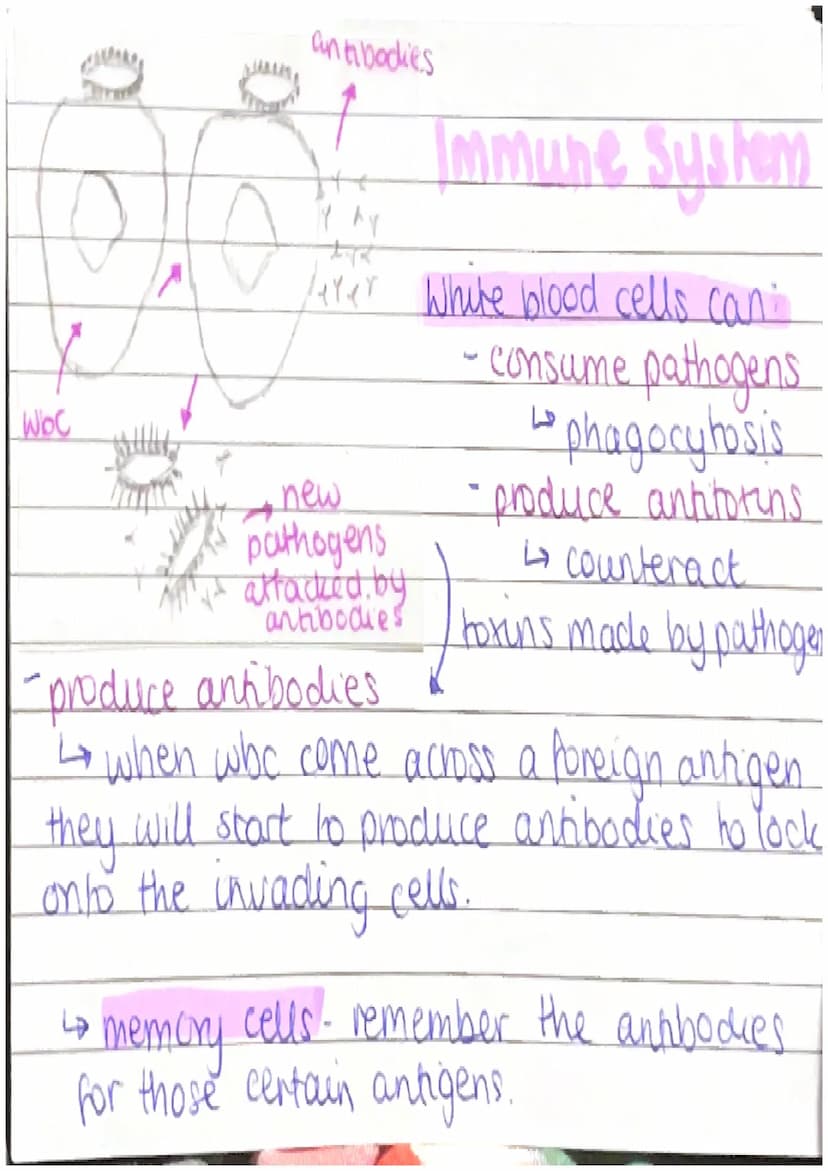 antibodies
Immune System
White blood cells can:
- consume pathogens
↳ phagocytosis
- produce antitoxins
↳ counteract
toxins made by pathogen
WbC
→ new
pathogens
attacked by
antibodies
- produce antibodies
↳ when wbc come across a foreign antigen
they will start to produce antibodies to lock
onto the invading cells.
↳ memory cells - remember the antibodies
for those certain antigens.